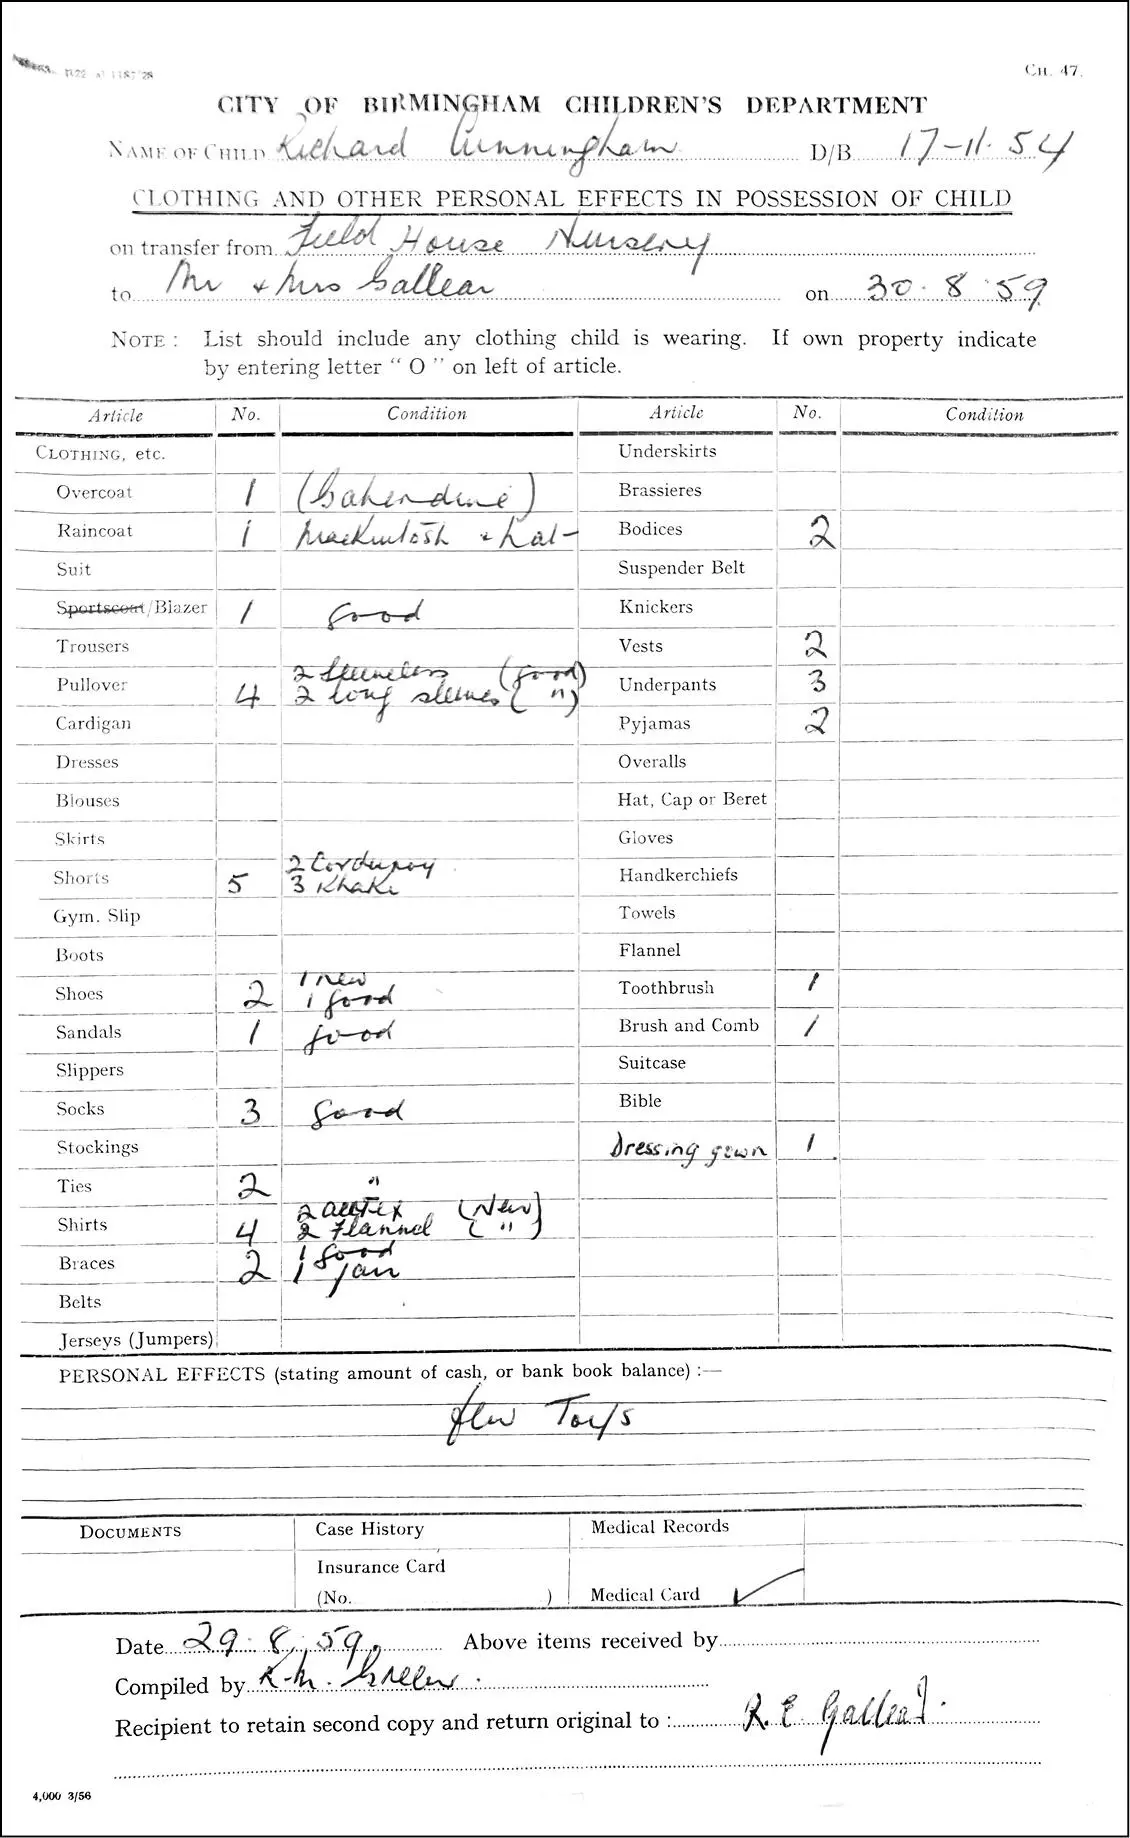 CH. 47.
CITY OF BIRMINGHAM CHILDREN'S DEPARTMENT
NAME OF CHILD Richard Cunningham D/B 17-11-54
CLOTHING AND OTHER PERSONAL EFFECTS IN POSSESSION OF CHILD
on transfer from Field House Nursery
to Mr & Mrs Gallear on 30.8.59
NOTE : List should include any clothing child is wearing. If own property indicate
by entering letter " O " on left of article.
Article No. Condition Article No. Condition
CLOTHING, etc. Underskirts
Overcoat 1 (Gaberdine) Brassieres
Raincoat 1 Mackintosh & hat Bodices 2
Suit Suspender Belt
Sportscoat/Blazer 1 good Knickers
Trousers Vests 2
2 Sleeveless (good)
Pullover 4 2 long sleeves ( " ) Underpants 3
Cardigan Pyjamas 2
Dresses Overalls
Blouses Hat, Cap or Beret
Skirts Gloves
2 Corduroy
Shorts 5 3 Khaki Handkerchiefs
Gym. Slip Towels
Boots Flannel
1 new
Shoes 2 1 good Toothbrush 1
Sandals 1 good Brush and Comb 1
Slippers Suitcase
Socks 3 good Bible
Stockings Dressing gown 1
Ties 2 "
2 (New)
Shirts 4 2 Flannel ( " )
1 good
Braces 2 1 fair
Belts
Jerseys (Jumpers)
PERSONAL EFFECTS (stating amount of cash, or bank book balance) :—
few Toys
DOCUMENTS Case History Medical Records
Insurance Card
(No. ) Medical Card ✓
Date 29.8.59. Above items received by
Compiled by K.M. Green.
Recipient to retain second copy and return original to : R. E. Gallear.
4,000 3/56